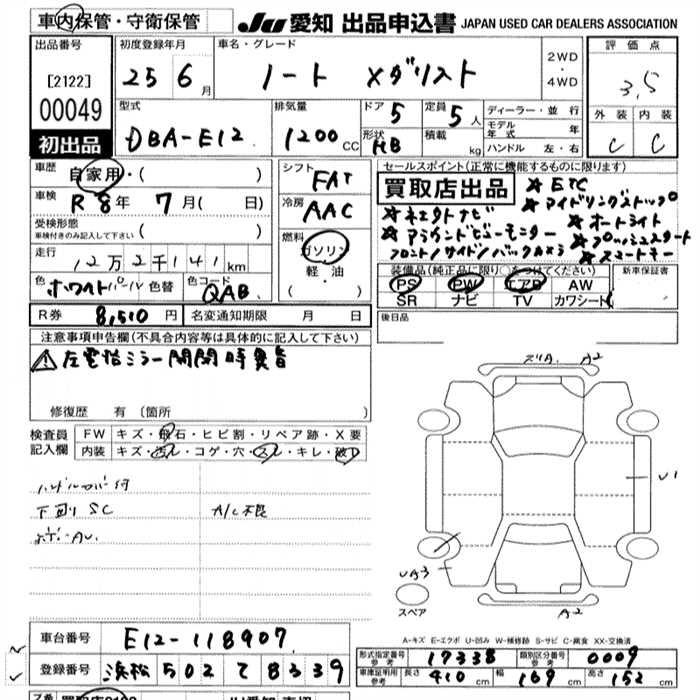 車内保管・守衛保管 JU 愛知 出品申込書 JAPAN USED CAR DEALERS ASSOCIATION
出品番号 初度登録年月 車名・グレード 評価点
[2122] 25年 6月 ノート メダリスト 2WD・4WD 3.5
00049 型式 排気量 ドア 5 定員 5人 ディーラー・並行 外装 内装
初出品 DBA-E12 1200CC 形状 HB 積載 kg モデル年式 年 C C
ハンドル 左・右
車歴 自家用・( ) シフト FAT セールスポイント(正常に機能するものに限ります)
車検 R8年 7月( 日) 冷房 AAC 買取店出品 ★ETC
★アイドリングストップ
受検形態 ( ) ★オートライト
車検付きのみ記入して下さい 燃料 ガソリン・軽油・( ) ★アラウンドビューモニター ★プッシュスタート
走行 12万2千141km フロント/サイド/バックカメラ ★スマートキー
色 ホワイトパール 色替 色コード QAB 装備品(純正品に限り○をつけてください) 新車保証書
PS PW エアB AW
SR ナビ TV カワシート
R券 8,510円 名変通知期限 月 日 後日品
注意事項申告欄(不具合内容等は具体的に記入して下さい)
⚠左電格ミラー開閉時異音
修復歴 有(箇所 )
検査員記入欄 FW キズ・飛石・ヒビ割・リペア跡・X要
内装 キズ・汚レ・コゲ・穴・スレ・キレ・破レ
ハンドルカバー付
下廻り SC A/C不良
ズリA. A2
U1
UA3
スペア A2
A-キズ E-エクボ U-凹み W-補修跡 S-サビ C-腐食 XX-交換済
車台番号 E12-118907 形式指定番号 参考 17338 類別区分番号 参考 0009
登録番号 浜松 502 て 8339 車庫証明用 参考 長さ 410cm 幅 169cm 高さ 152cm